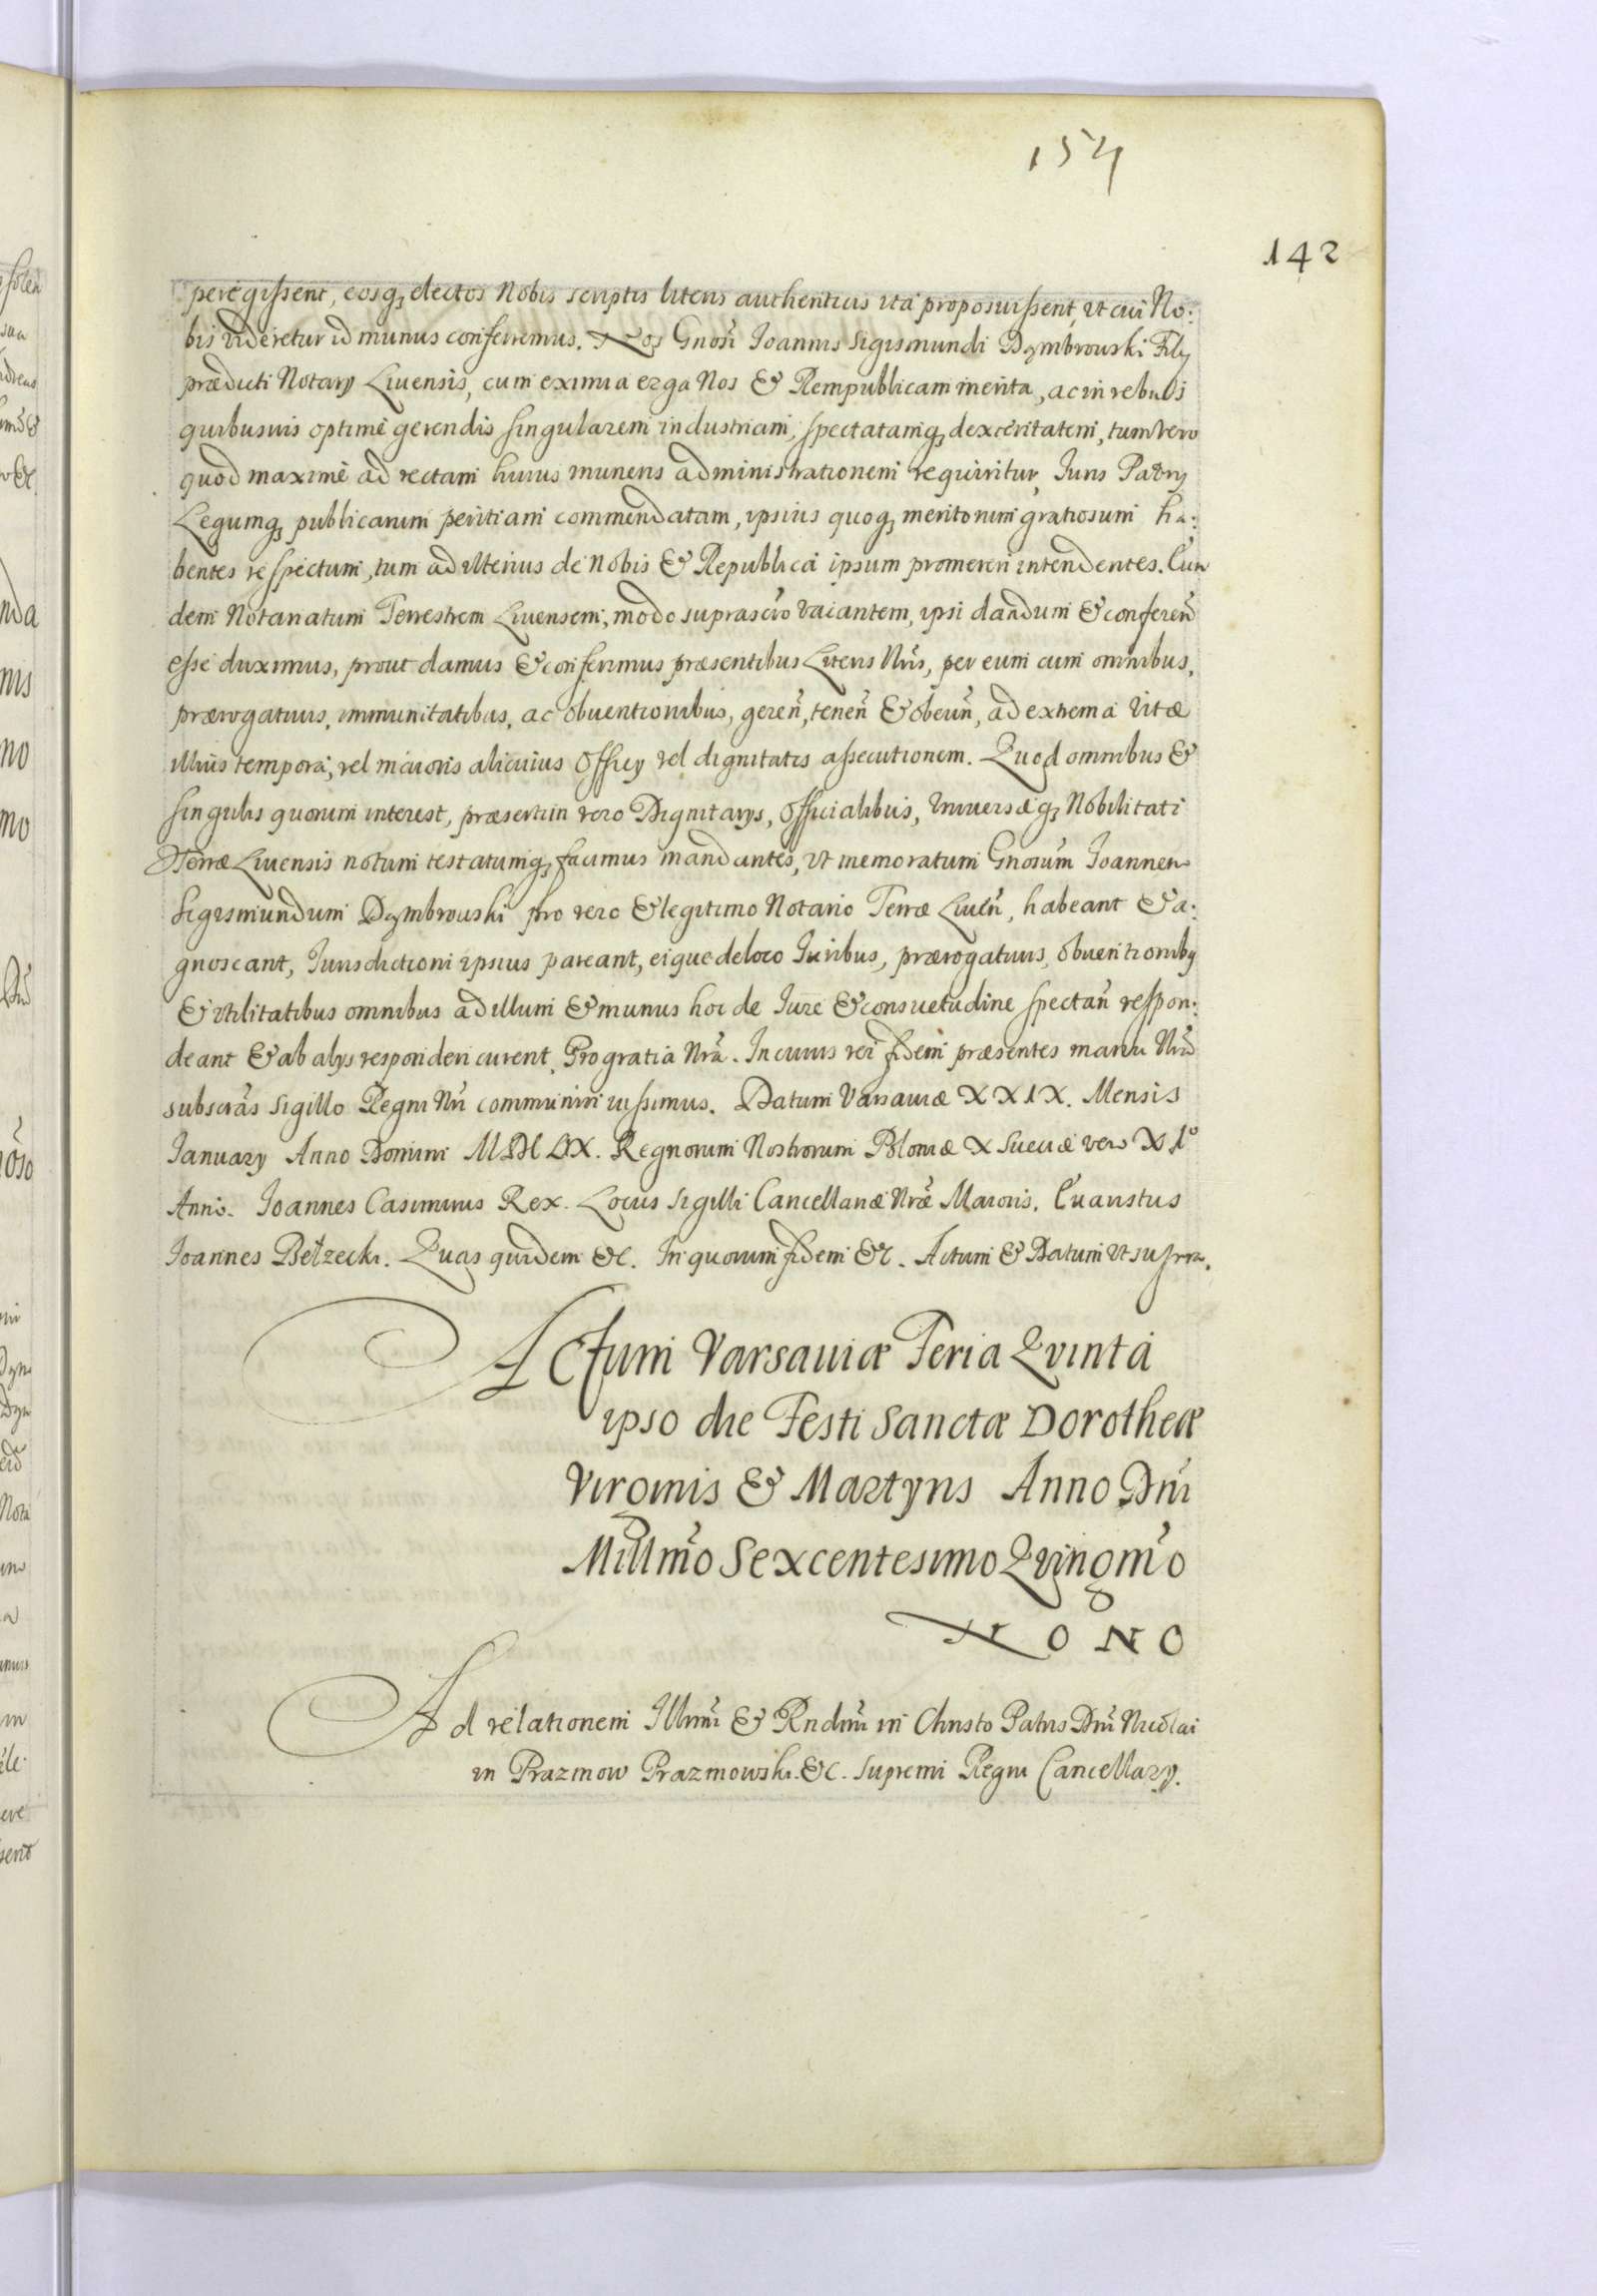 154
142
peregissent, eosq; electos Nobis scriptis literis authenticis ita proposuissent, vt cui No:
bis videretur id munus conferremus. Nos Gnosi Ioannis Sigismundi Dymbrouski Filij
prædicti Notarij Liuensis, cum eximia erga Nos & Rempublicam merita, ac in rebus
quibusuis optimè gerendis singularem industriam, spectatamq; dexteritatem, tum vero
quod maximè ad rectam huius muneris administrationem requiritur, Iuris Patrij
Legumq; publicarum peritiam commendatam, ipsius quoq; meritorum gratiosum ha:
bentes respectum, tum ad vlterius de Nobis & Republica ipsum promereri intendentes. Eun
dem Notariatum Terrestrem Liuensem, modo suprascro vacantem, ipsi dandum & conferen
esse duximus, prout damus & conferimus præsentibus Literis Nris, per eum cum omnibus,
prærogatiuis, immunitatibus, ac obuentionibus, geren, tenen & obeun, ad extrema vitæ
illius tempora, vel maioris alicuius Officij vel dignitatis assecutionem. Quod omnibus &
singulis quorum interest, præsertim vero Dignitarijs, Officialibus, Vniuersæq; Nobilitati
Terræ Liuensis notum testatumq; facimus mandantes, vt memoratum Gnosum Ioannem
Sigismundum Dymbrouski pro vero & legitimo Notario Terræ Liuen, habeant & a:
gnoscant, Iurisdictioni ipsius pareant, eique de loco Iuribus, prærogatiuis, obuentionibq
& vtilitatibus omnibus ad illum & munus hoc de Iure & consuetudine spectan respon:
deant & ab alijs responderi curent, Pro gratia Nra. In cuius rei fidem præsentes manu Nra
subscras sigillo Regni Nri communiri iussimus. Datum Varsauiæ XXIX. Mensis
Ianuarij Anno Domini MDCLIX. Regnorum Nostrorum Poloniæ X Sueciæ vero XI°
Anno. Ioannes Casimirus Rex. Locus Sigilli Cancellariæ Nræ Maioris. Euaristus
Ioannes Bełzecki. Quas quidem &c. In quorum fidem &c. Actum & Datum vt supra.
Actum Varsauiæ Feria Qvinta
ipso die Festi Sanctæ Dorotheæ
Virginis & Martyris Anno Dni
Millmo Sexcentesimo Qvinqgmo
NONO
Ad relationem Illmi & Rndmi in Christo Patris Dni Nicolai
in Prazmow Prazmowski. &c. Supremi Regni Cancellarij.